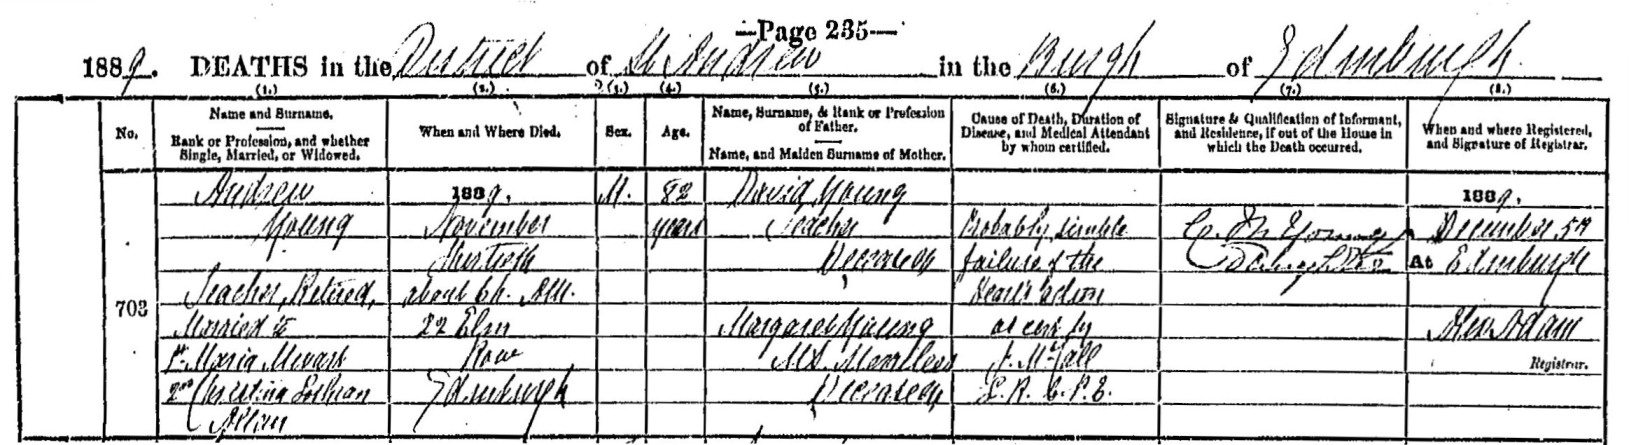 —Page 235—
1889. DEATHS in the District of St Andrew in the Burgh of Edinburgh
(1.) (2.) (3.) (4.) (5.) (6.) (7.) (8.)
No.
Name and Surname.
Rank or Profession, and whether
Single, Married, or Widowed.
When and Where Died.
Sex.
Age.
Name, Surname, & Rank or Profession
of Father.
Name, and Maiden Surname of Mother.
Cause of Death, Duration of
Disease, and Medical Attendant
by whom certified.
Signature & Qualification of Informant,
and Residence, if out of the House in
which the Death occurred.
When and where Registered,
and Signature of Registrar.
703
Andrew
Young
Teacher, Retired,
Married to
1st Maria
2nd Christina Lothian
Allan
1889.
November
Thirtieth
about 6h. AM.
22 Elm
Row
Edinburgh
M.
82
years
David Young
Teacher
Deceased
Margaret Young
M.S.
Deceased
Probably simple
failure of the
Heart's action
as cert by
L. R. C. P. E.
Young
Daughter
1889.
December 5th
At Edinburgh
Alex Adam
Registrar.